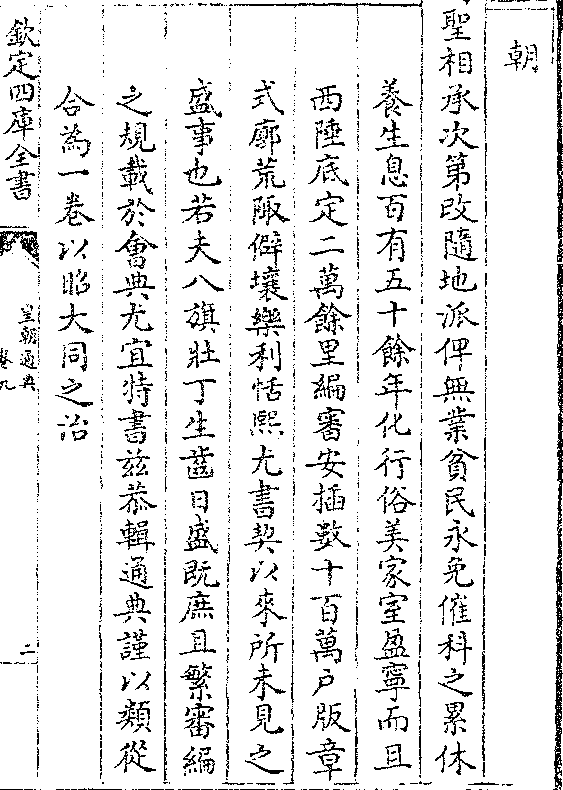 朝
聖相承次第改隨地派俾無業貧民永免催科之累休
養生息百有五十餘年化行俗美家室盈寧而且
西陲底定二萬餘里編審安插數十百萬戶版章
式廓荒陬僻壤樂利恬熙尤書契以來所未見之
盛事也若夫八旗壯丁生齒日盛既庶且繁審編
之規載於會典尤宜特書兹恭輯通典謹以類從
合為一卷以昭大同之治
欽定四庫全書
皇朝通典
卷九
二